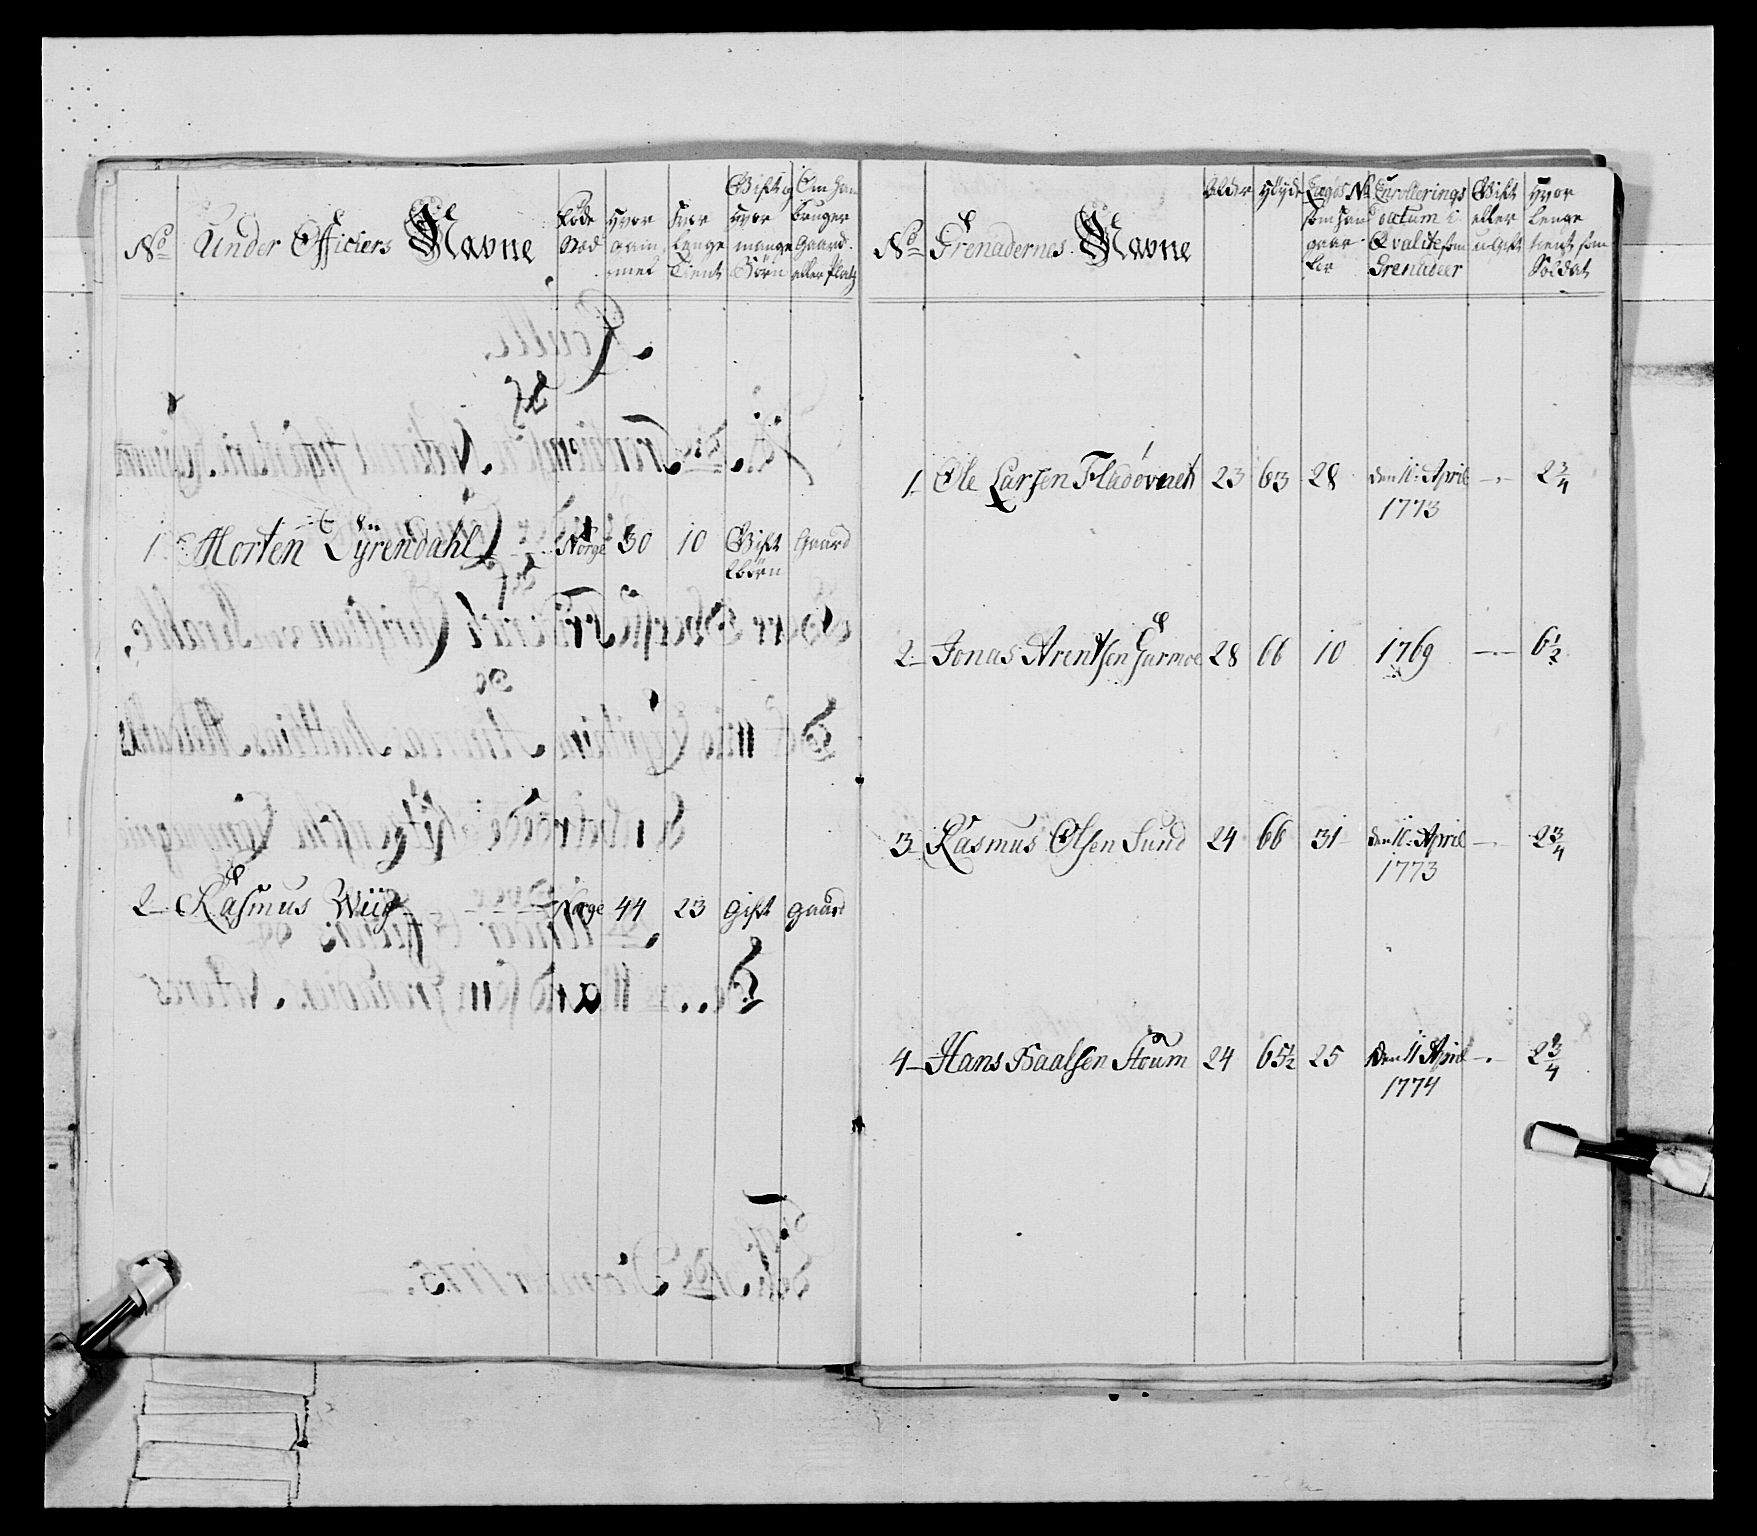 No Under Officiers Navne Føde Sted Hvor gammel Hvor længe Tient Gift og Hvor mange Børn Om Han bruger Gaard eller Platz
1 Morten Tÿrendahl Norge 30 10 Gift Gaard
2 børn
2 Rasmus Wiig Norge 44 23 Gift gaard
No Grenadernes Navne Alder Høyde Lægds No som han gaar for Enrollerings datum i Qvalite som Grenadeer Gift eller ugift Hvor lenge tient som Soldat
1 Ole Larsen Fladøvnet 23 63 28 den 11te April 2 3/4
1773
2 Jonas Arentsen Garmoe 28 66 10 1769 6 1/2
3 Rasmus Olsen Sund 24 66 31 den 11te April 2 3/4
1773
4 Hans Isaalsen Stoum 24 65 1/2 25 Den 11 April 2 3/4
1774